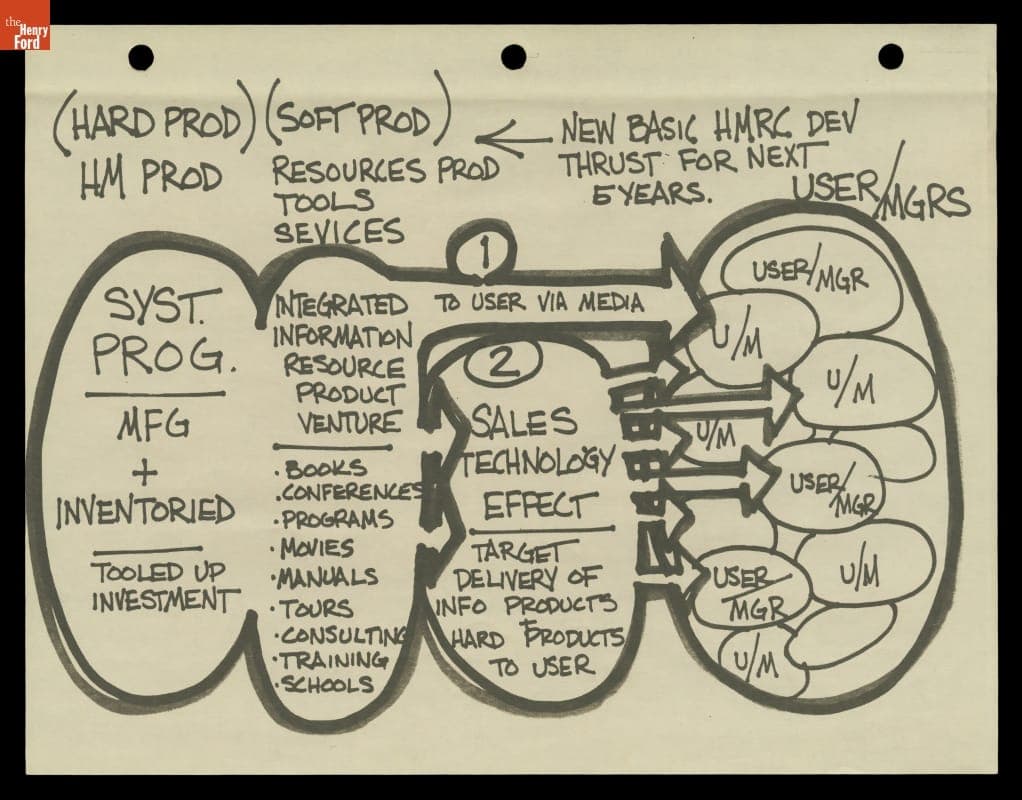 the
Henry
Ford
(HARD PROD)
HM PROD
(SOFT PROD)
RESOURCES PROD
TOOLS
SEVICES
NEW BASIC HMRC DEV
THRUST FOR NEXT
5 YEARS.
USER/MGRS
SYST.
PROG.
MFG
+
INVENTORIED
TOOLED UP
INVESTMENT
INTEGRATED
INFORMATION
RESOURCE
PRODUCT
VENTURE
· BOOKS
· CONFERENCES
· PROGRAMS
· MOVIES
· MANUALS
· TOURS
· CONSULTING
· TRAINING
· SCHOOLS
1
TO USER VIA MEDIA
2
SALES
TECHNOLOGY
EFFECT
TARGET
DELIVERY OF
INFO PRODUCTS
+
HARD PRODUCTS
TO USER
USER/MGR
U/M
U/M
U/M
USER/
MGR
U/M
USER/
MGR
U/M